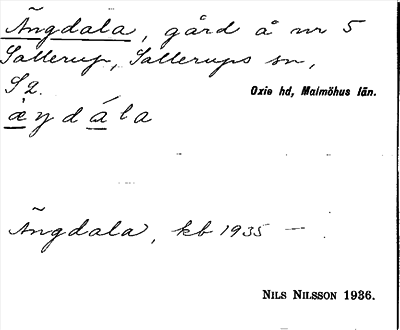 Ängdala, gård å nr 5
Sallerup, Sallerups sn,
S 2.
Oxie hd, Malmöhus län.
ä̀ŋdála
Ängdala, kb 1935 –
NILS NILSSON 1936.